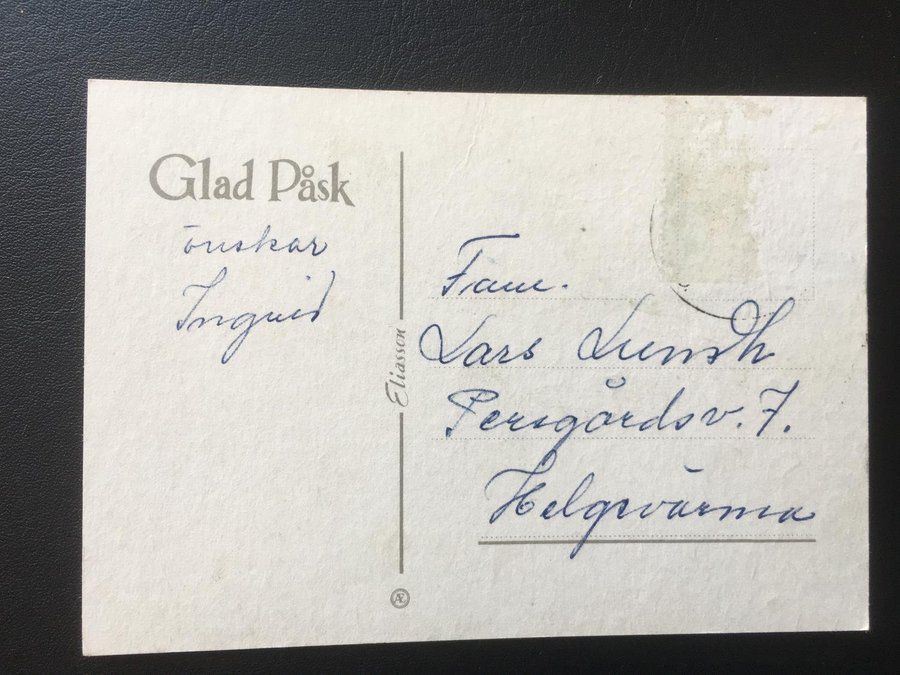 Glad Påsk
önskar
Ingrid
Eliasson
Æ
Fam.
Lars Lundh
Persgårdsv. 7.
Helgevärma